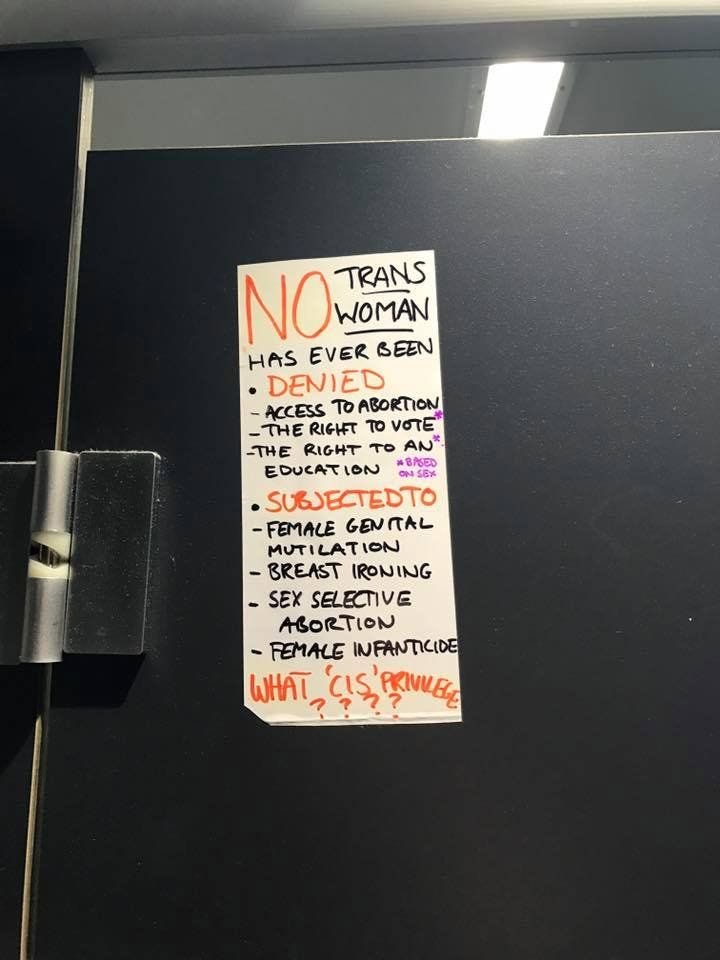 NO TRANS
WOMAN
HAS EVER BEEN
• DENIED
- ACCESS TO ABORTION
- THE RIGHT TO VOTE*
- THE RIGHT TO AN*
EDUCATION *BASED
ON SEX
• SUBJECTED TO
- FEMALE GENITAL
MUTILATION
- BREAST IRONING
- SEX SELECTIVE
ABORTION
- FEMALE INFANTICIDE
WHAT 'CIS' PRIVILEGE
? ? ? ?